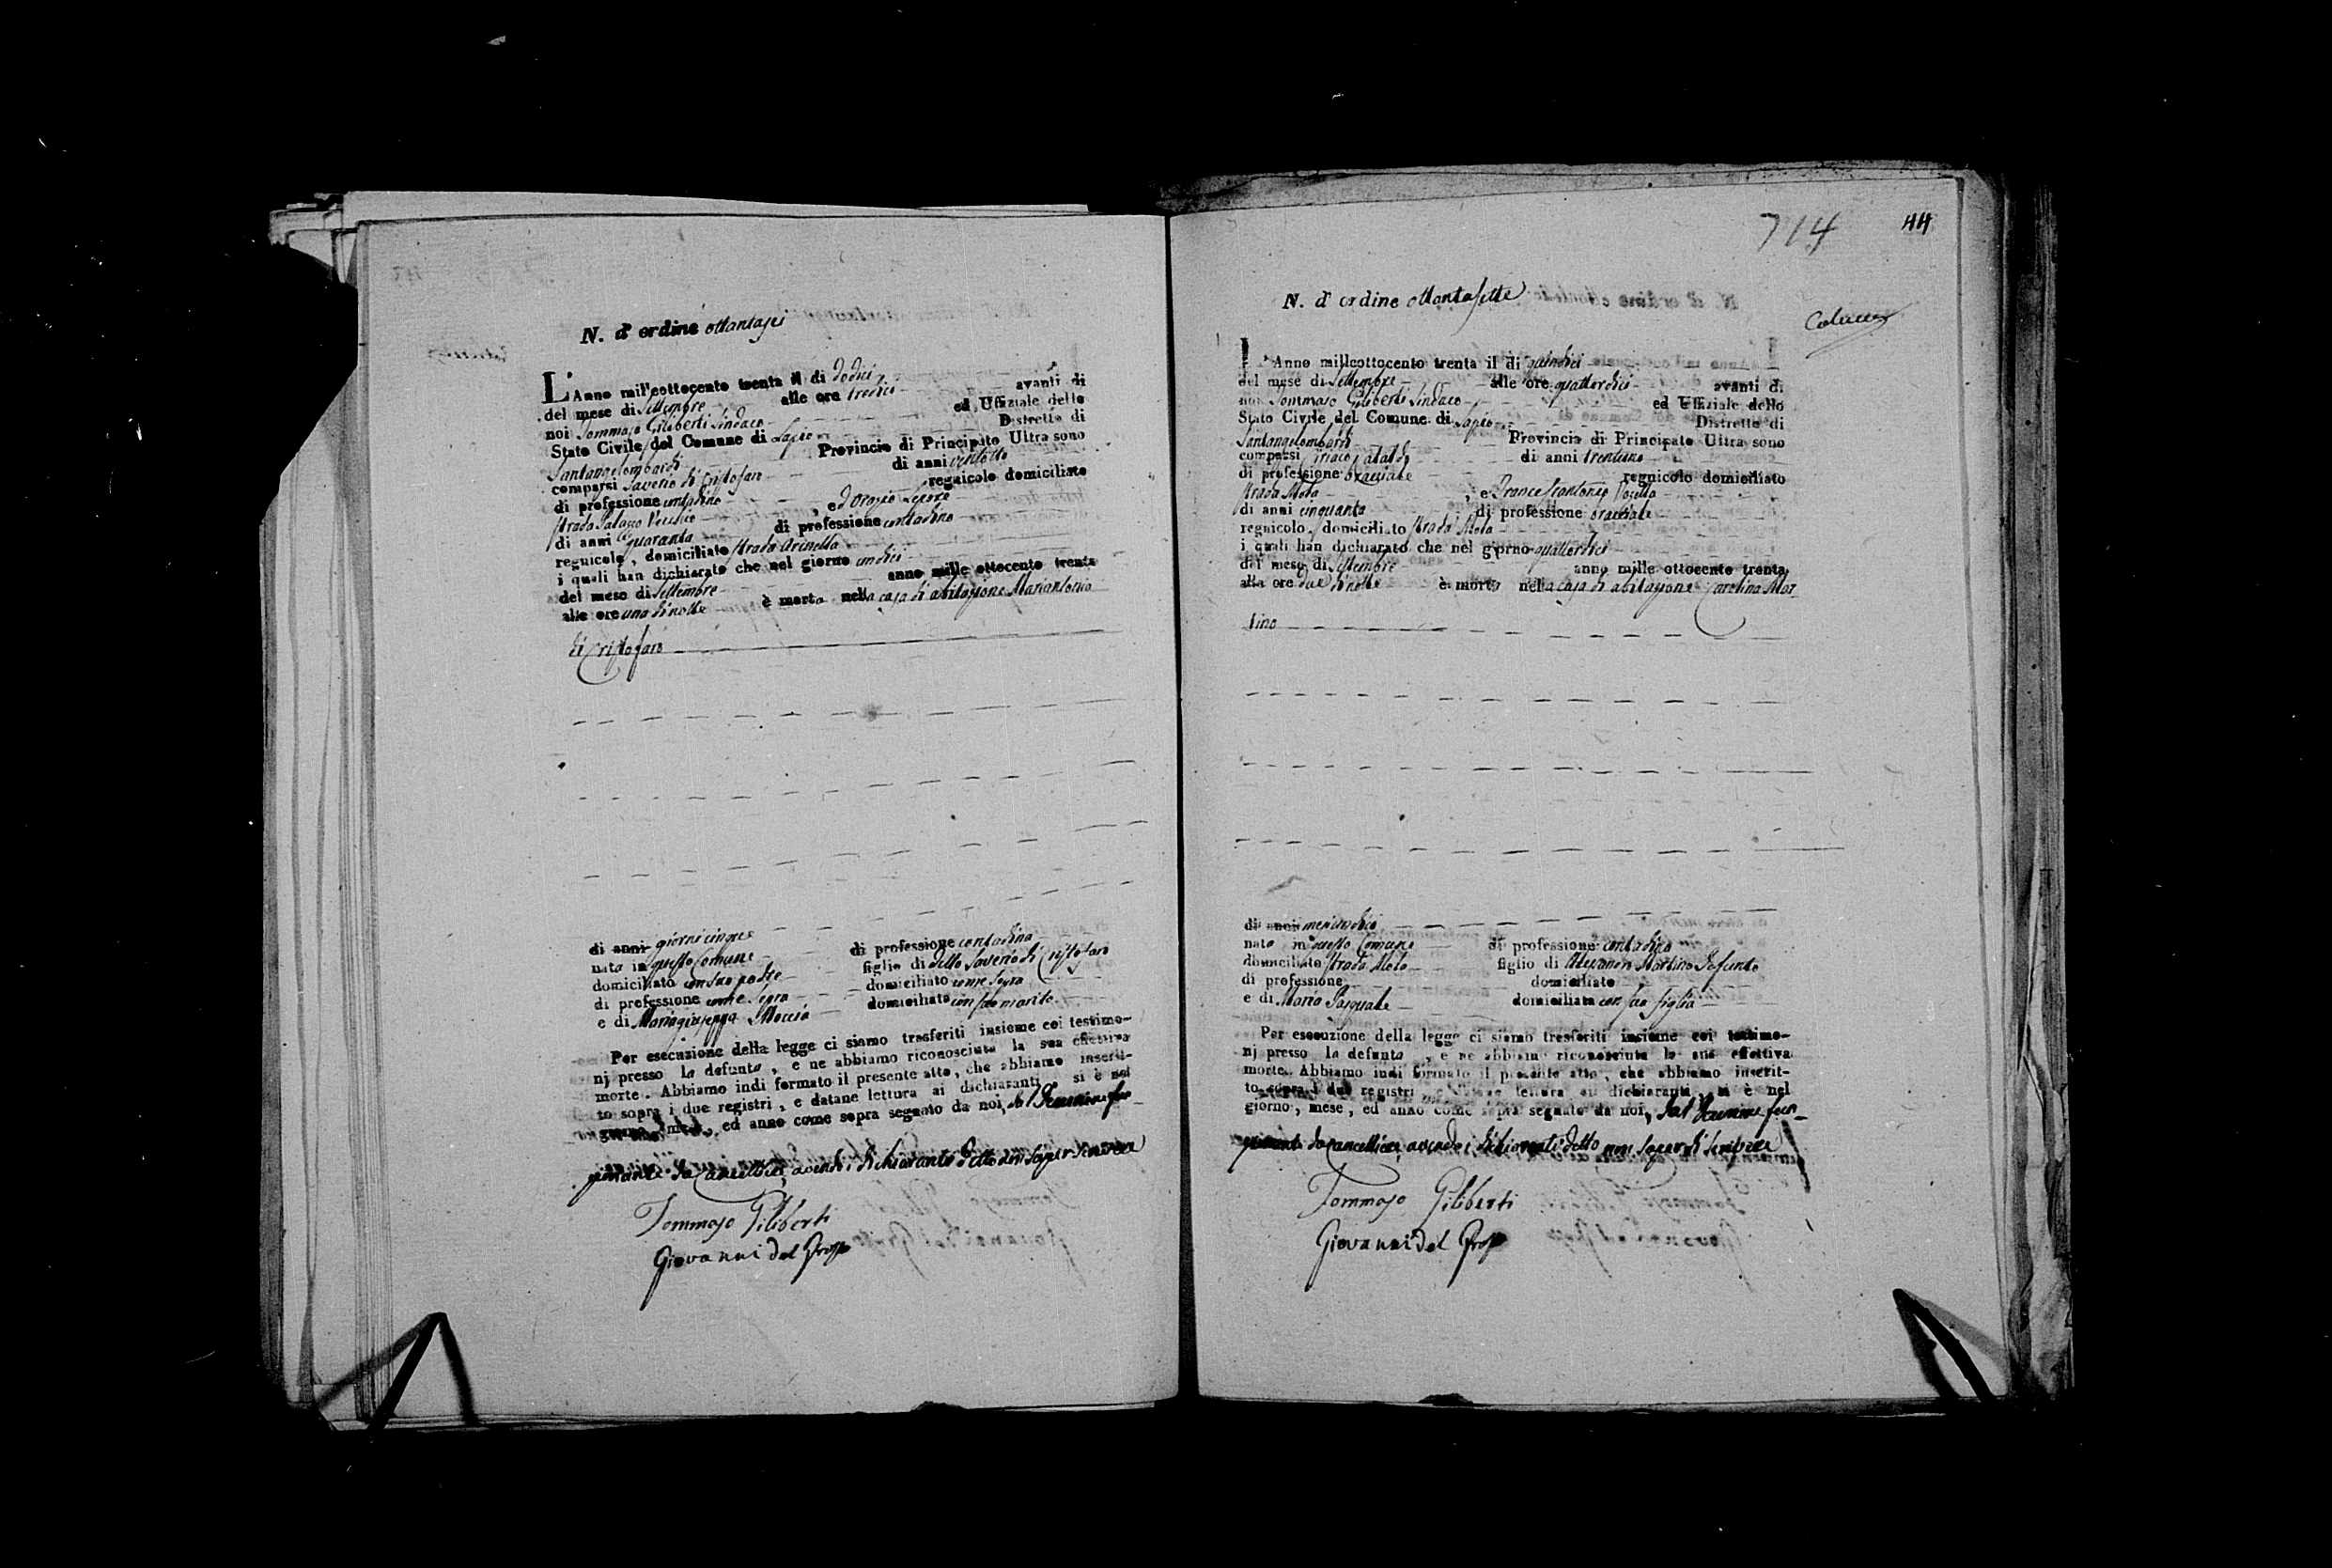 N. d' ordine ottantasei
L'Anno mill'ottocento trenta il di dodici
del mese di Settembre alle ore tredici avanti di
noi Tommaso Giliberti Sindaco ed Uffiziale dello
Stato Civile del Comune di Lapio Distretto di
Santangelombardi Provincia di Principato Ultra sono
comparsi Saverio di Cristofaro di anni ventotto
di professione contadino regnicolo domiciliato
strada Palazzo Vecchio , ed Orazio Lepore
di anni quaranta di professione contadino
regnicolo, domiciliato strada Arinella
i quali han dichiarato che nel giorno undici
del mese di Settembre anno mille ottocento trenta
alle ore una di notte è morta nella casa di abitazione Mariantonia
di Cristofaro
di anni giorni cinque di professione contadina
nata in questo Comune figlia di detto Saverio di Cristofaro
domiciliato con suo padre domiciliato come sopra
di professione come sopra domiciliata con suo marito
e di Mariagiuseppa Moccia
Per esecuzione della legge ci siamo trasferiti insieme coi testimo-
nj presso la defunta , e ne abbiamo riconosciuta la sua effettiva
morte. Abbiamo indi formato il presente atto, che abbiamo inserit-
to sopra i due registri, e datane lettura ai dichiaranti, si è nel
giorno, mese, ed anno come sopra segnato da noi, dal Decurione fun-
zionante da Cancelliere, avendo i dichiaranti detto non saper scrivere
Tommaso Giliberti
Giovanni del Grosso
714 44
N. d' ordine ottantasette
L'Anno mill'ottocento trenta il di quindici
del mese di Settembre alle ore quattordici avanti di
noi Tommaso Giliberti Sindaco ed Uffiziale dello
Stato Civile del Comune di Lapio Distretto di
Santangelombardi Provincia di Principato Ultra sono
comparsi Ciriaco Cataldo di anni trentuno
di professione bracciale regnicolo domiciliato
strada Mela , e Francescantonio
di anni cinquanta di professione bracciale
regnicolo, domiciliato strada Mela
i quali han dichiarato che nel giorno quattordici
del mese di Settembre anno mille ottocento trenta
alla ore due di notte è morta nella casa di abitazione Carolina Mar-
tino
di anni mesi undici
nata in questo Comune di professione contadina
domiciliata strada Mela figlia di Alesandro Martino defunto
di professione domiciliato
e di Maria Pasquale domiciliata con sua figlia
Per esecuzione della legge ci siamo trasferiti insieme coi testimo-
nj presso la defunta , e ne abbiamo riconosciuta la sua effettiva
morte. Abbiamo indi formato il presente atto, che abbiamo inserit-
to sopra i due registri e datane lettura ai dichiaranti, si è nel
giorno, mese, ed anno come sopra segnato da noi, dal Decurione fun-
zionante da Cancelliere, avendo i dichiaranti detto non saper di scrivere
Tommaso Giliberti
Giovanni del Grosso